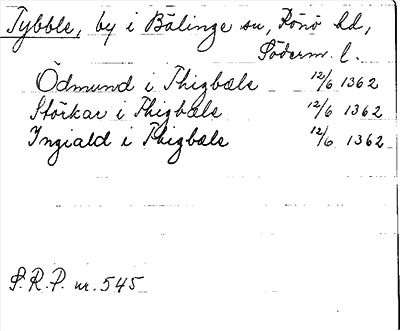 Tybble, by i Bälinge sn, Rönö hd,
Söderm. l.
Ödmund i Thigbæle 12/6 1362
Störkar i Thigbæle 12/6 1362
Ingiald i Thigbæle 12/6 1362
S.R.P. nr. 545